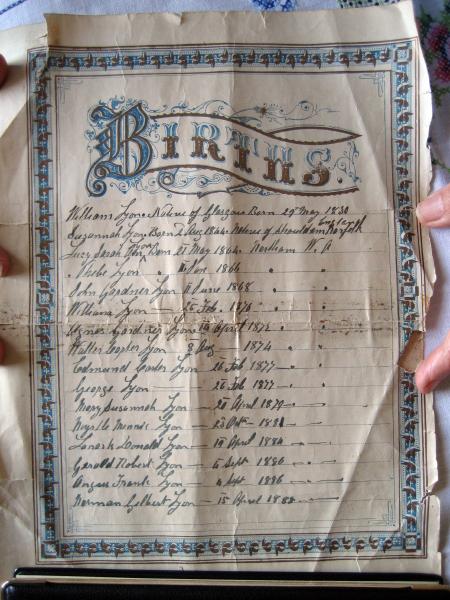 BIRTHS.
William Lyon Native of Glasgow Born 29 May 1830
England
Susannah Lyon Born 2 Aug 1844 Native of Norfolk
Lucy Sarah Lyon Born 21 May 1864 Northam W. A
" Phebe Lyon " June 1866 " "
John Gardner Lyon 11 June 1868 " "
William Lyon — 25 Feb 1870 " "
Agnes Gardner Lyon 19 April 1872 " "
Walter Carter Lyon 8 Aug 1874 " "
Edmund Carter Lyon — 26 Feb 1877 — "
George Lyon — 26 Feb 1877 — "
Mary Susannah Lyon — 20 April 1879 —
Lyon — 23 Oct 1881 —
Lanark Donald Lyon — 19 April 1884 —
Gerald Robert Lyon — 6 Sept 1886 — "
Angus Frank Lyon — 6 Sept 1886 — "
Norman Gilbert Lyon — 15 April 1888 —